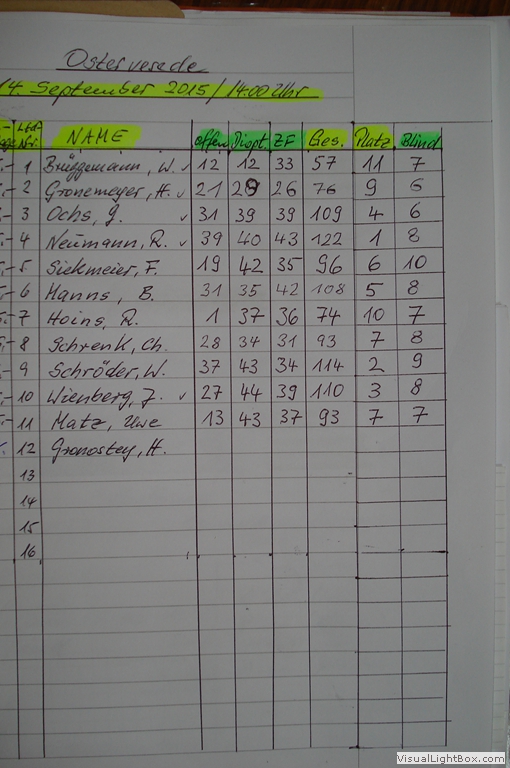 Osterverede
14. September 2015 / 14:00 Uhr
Lfd. Nr. NAME offen Diopt. ZF Ges. Platz Blind
1 Brüggemann, W. ✓ 12 12 33 57 11 7
2 Gronemeyer, H. ✓ 21 29 26 76 9 6
3 Ochs, G. ✓ 31 39 39 109 4 6
4 Neumann, R. ✓ 39 40 43 122 1 8
5 Siekmeier, F. 19 42 35 96 6 10
6 Hanns, B. 31 35 42 108 5 8
7 Hoins, R. 1 37 36 74 10 7
8 Schrenk, Ch. 28 34 31 93 7 8
9 Schröder, W. 37 43 34 114 2 9
10 Wienberg, J. ✓ 27 44 39 110 3 8
11 Matz, Uwe 13 43 37 93 7 7
12 Gronostey, H.
13
14
15
16
VisualLightBox.com